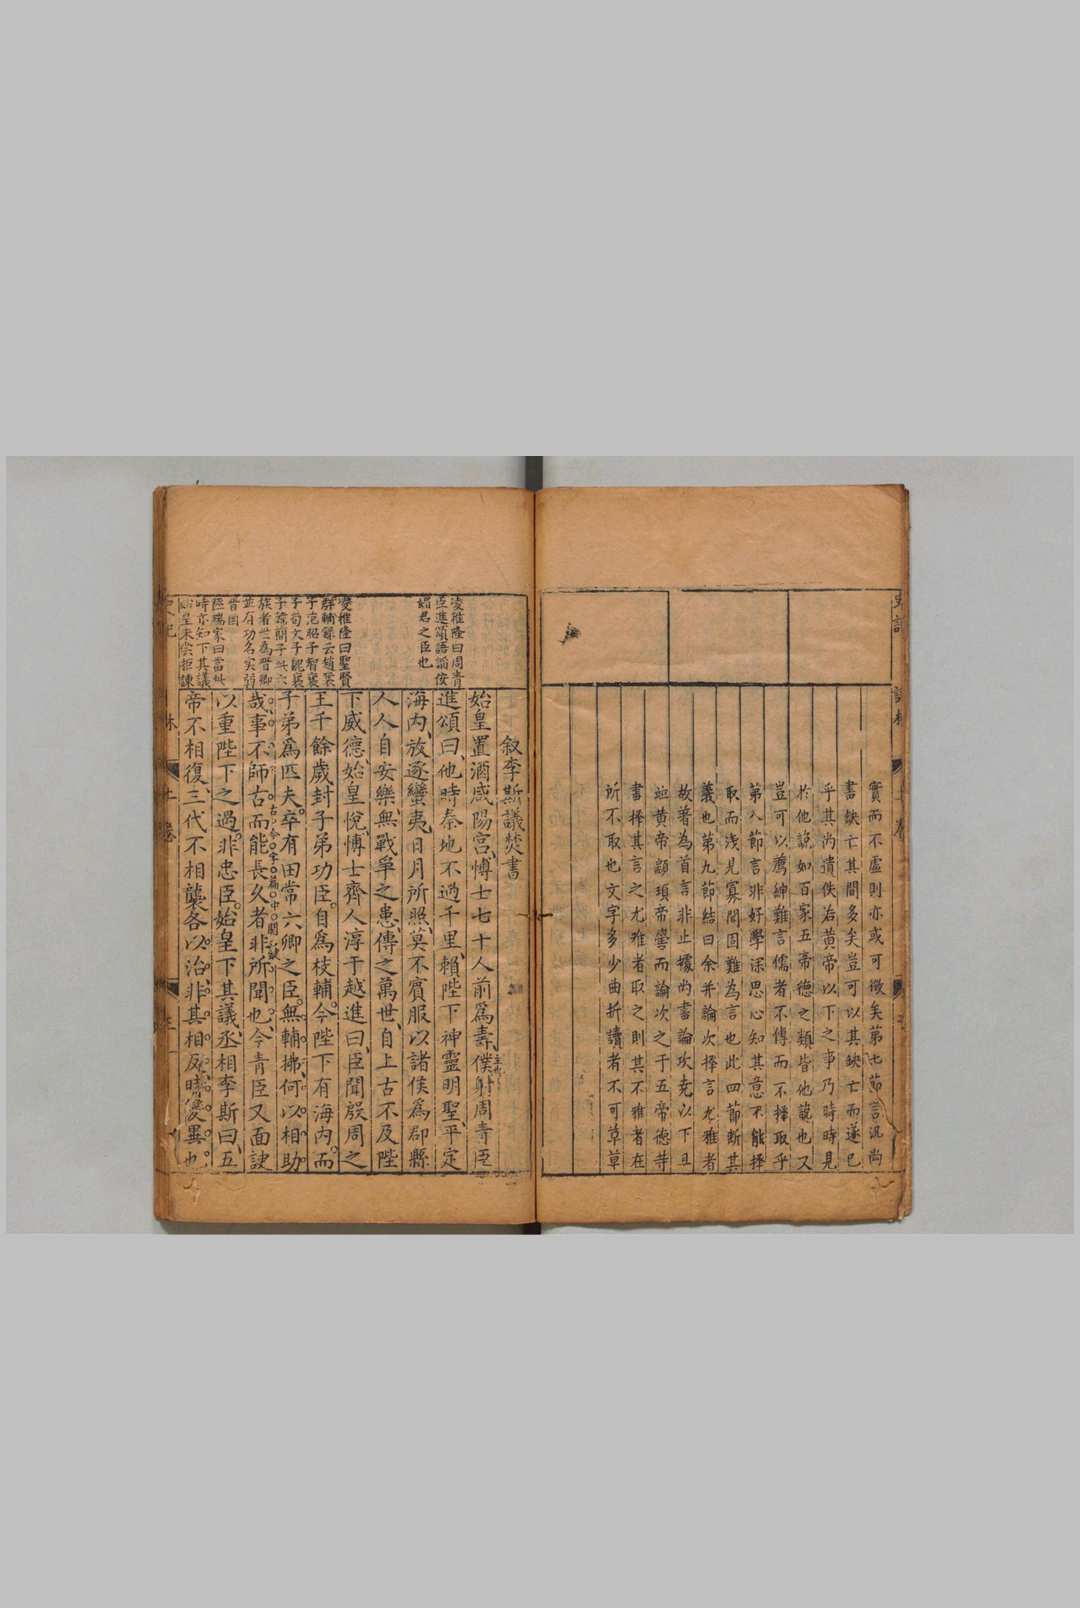 實而不虛則亦或可徵矣第七節言況尚
書缺亡其間多矣豈可以其缺亡而遂已
乎其尚遺佚若黃帝以下之事乃時時見
於他說如百家五帝德之類皆他說也又
豈可以薦紳難言儒者不傳而不擇取乎
第八節言非好學深思心知其意不能擇
取而淺見寡聞固難為言也此四節斷其
義也第九節結曰余并論次擇言尤雅者
故著為首言非止據尚書論攻堯以下且
始黃帝顓頊帝嚳而論次之于五帝德等
書擇其言之尤雅者取之則其不雅者在
所不取也文字多少曲折讀者不可草草
凌稚隆曰周青
臣進頌語諂佞
媚君之臣也
凌稚隆曰聖賢
群輔錄云趙衰
子范昭子智襄
子荀文子魏襄
子韓簡子此六
族者世為晉卿
並有功名實弱
晉國
時亦知下其議
始皇未嘗拒諫
敘李斯議焚書
始皇置酒咸陽宮博士七十人前爲壽僕射周青臣
進頌曰他時秦地不過千里賴陛下神靈明聖平定
海内放逐蠻夷日月所照莫不賓服以諸侯爲郡縣
人人自安樂無戰爭之患傳之萬世自上古不及陛
下威德始皇悅博士齊人淳于越進曰臣聞殷周之
王千餘歲封子弟功臣自爲枝輔今陛下有海内而
子弟爲匹夫卒有田常六卿之臣無輔拂何以相助
哉事不師古而能長久者非所聞也今青臣又面諛
以重陛下之過非忠臣始皇下其議丞相李斯曰五
帝不相復三代不相襲各以治非其相反時變異也